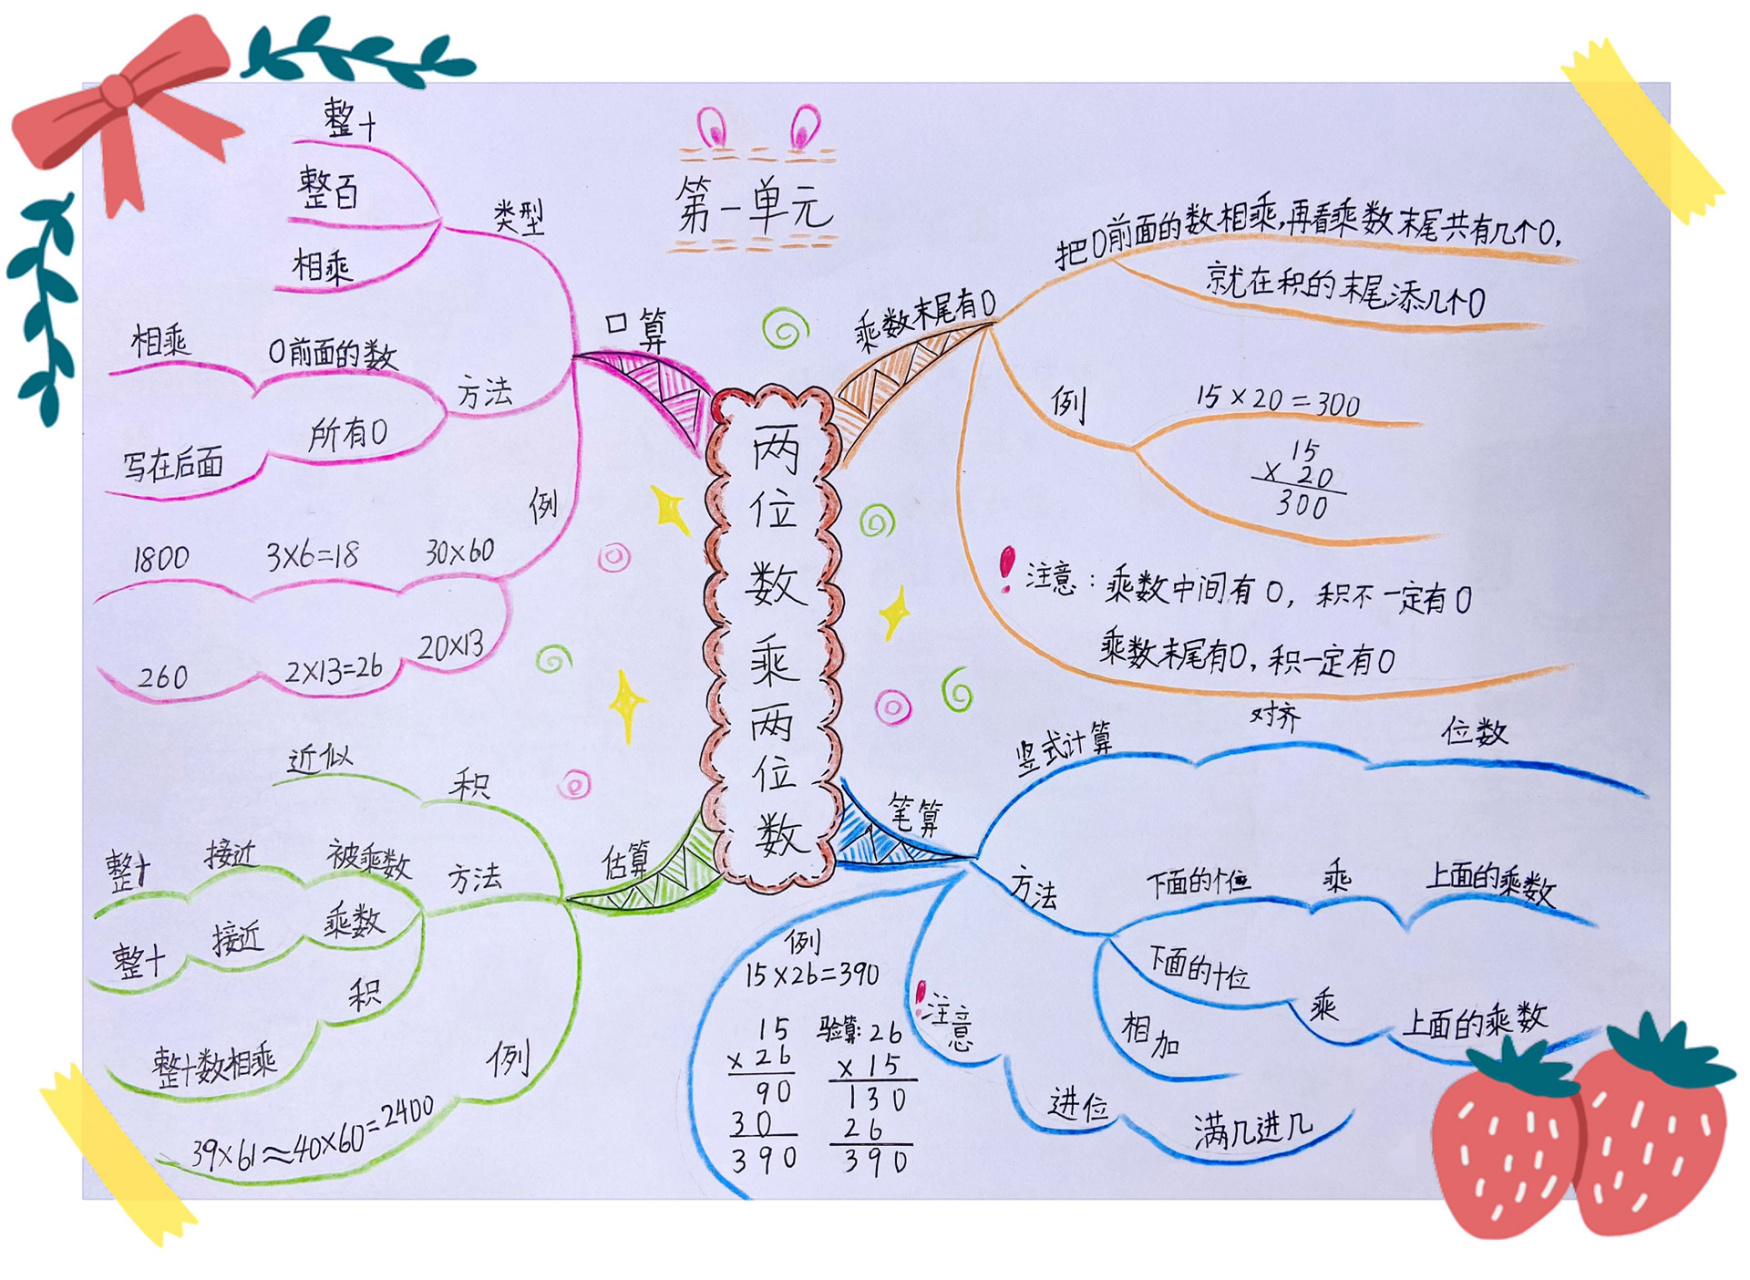 第一单元
两位数乘两位数
口算
类型
整十
整百
相乘
方法
0前面的数
相乘
所有0
写在后面
例
30×60
3×6=18
1800
20×13
2×13=26
260
乘数末尾有0
把0前面的数相乘,再看乘数末尾共有几个0,
就在积的末尾添几个0
例
15×20=300
15
× 20
300
!注意:乘数中间有0,积不一定有0
乘数末尾有0,积一定有0
估算
积
近似
方法
被乘数
接近
整十
乘数
接近
整十
积
整十数相乘
例
39×61≈40×60=2400
笔算
竖式计算
对齐
位数
方法
下面的个位
乘
上面的乘数
下面的十位
乘
上面的乘数
相加
!注意
进位
满几进几
例
15×26=390
15
× 26
90
30
390
验算:26
× 15
130
26
390